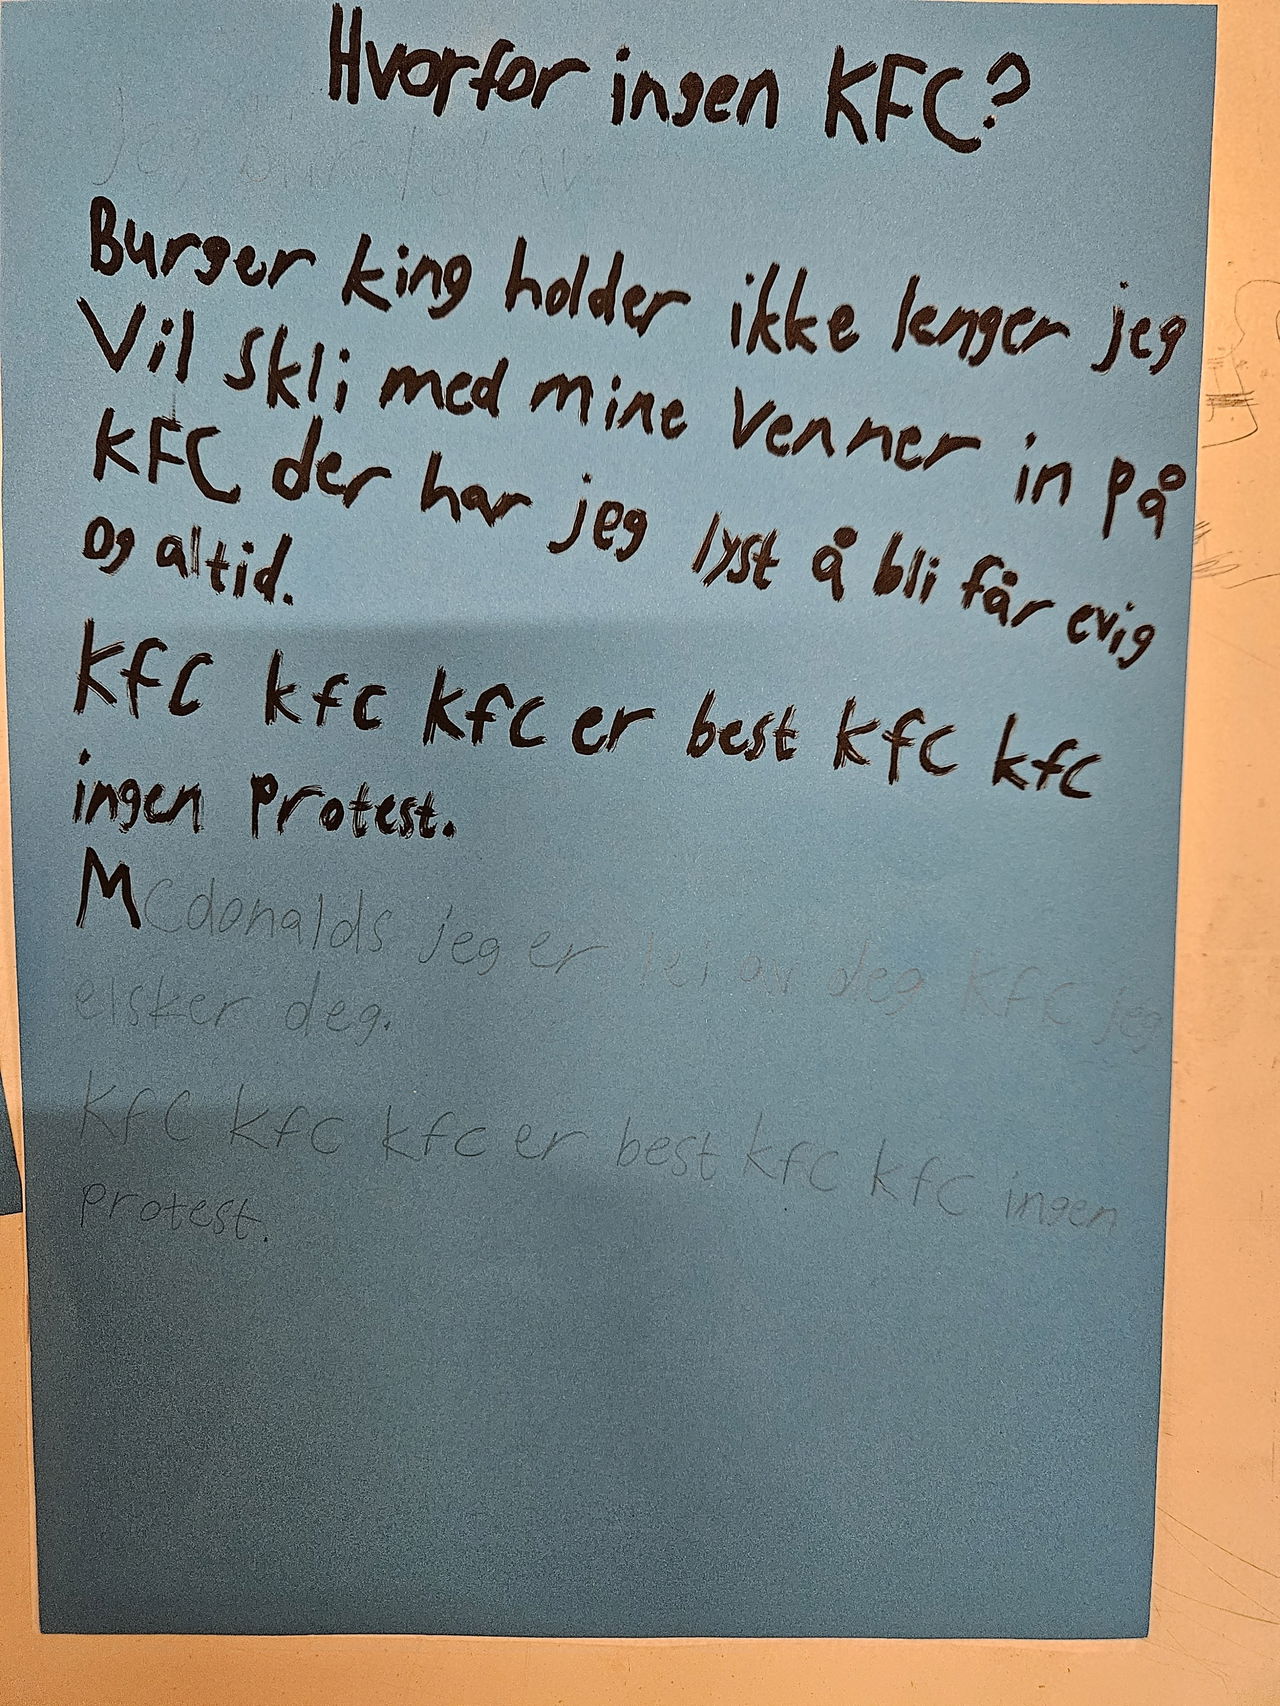 Hvorfor ingen KFC?
Burger king holder ikke lenger jeg
Vil skli med mine venner in på
KFC der har jeg lyst å bli får evig
og altid.
Kfc kfc kfc er best kfc kfc
ingen protest.
Mcdonalds jeg er lei av deg KFC jeg
elsker deg.
Kfc kfc kfc er best kfc kfc ingen
protest.